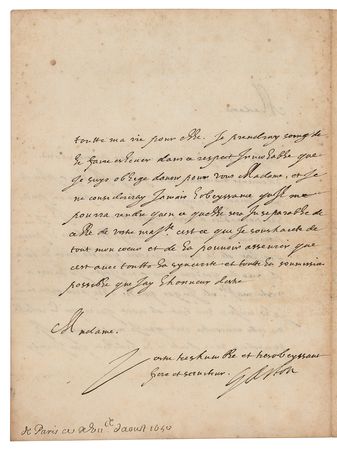 toutte ma vie pour elle. Je prendray soing de
le faire eslever dans ce respect Inviolable que
Je suys oblige davoir pour vous Madame, et Je
ne considereray Jamais lobeyssance quil me
pourra rendre quen ce quelle sera Inseparable de
celle de votre ma.te cest ce que Je souhaite de
tout mon coeur et de la pouvoir asseurer que
cest avec toutte la syncerite et toutte la soumission
possible que Jay lhonneur destre
Madame.
Vostre treshumble et tresobeyssant
frere et serviteur.
Gaston
de Paris ce 11e daoust 1650